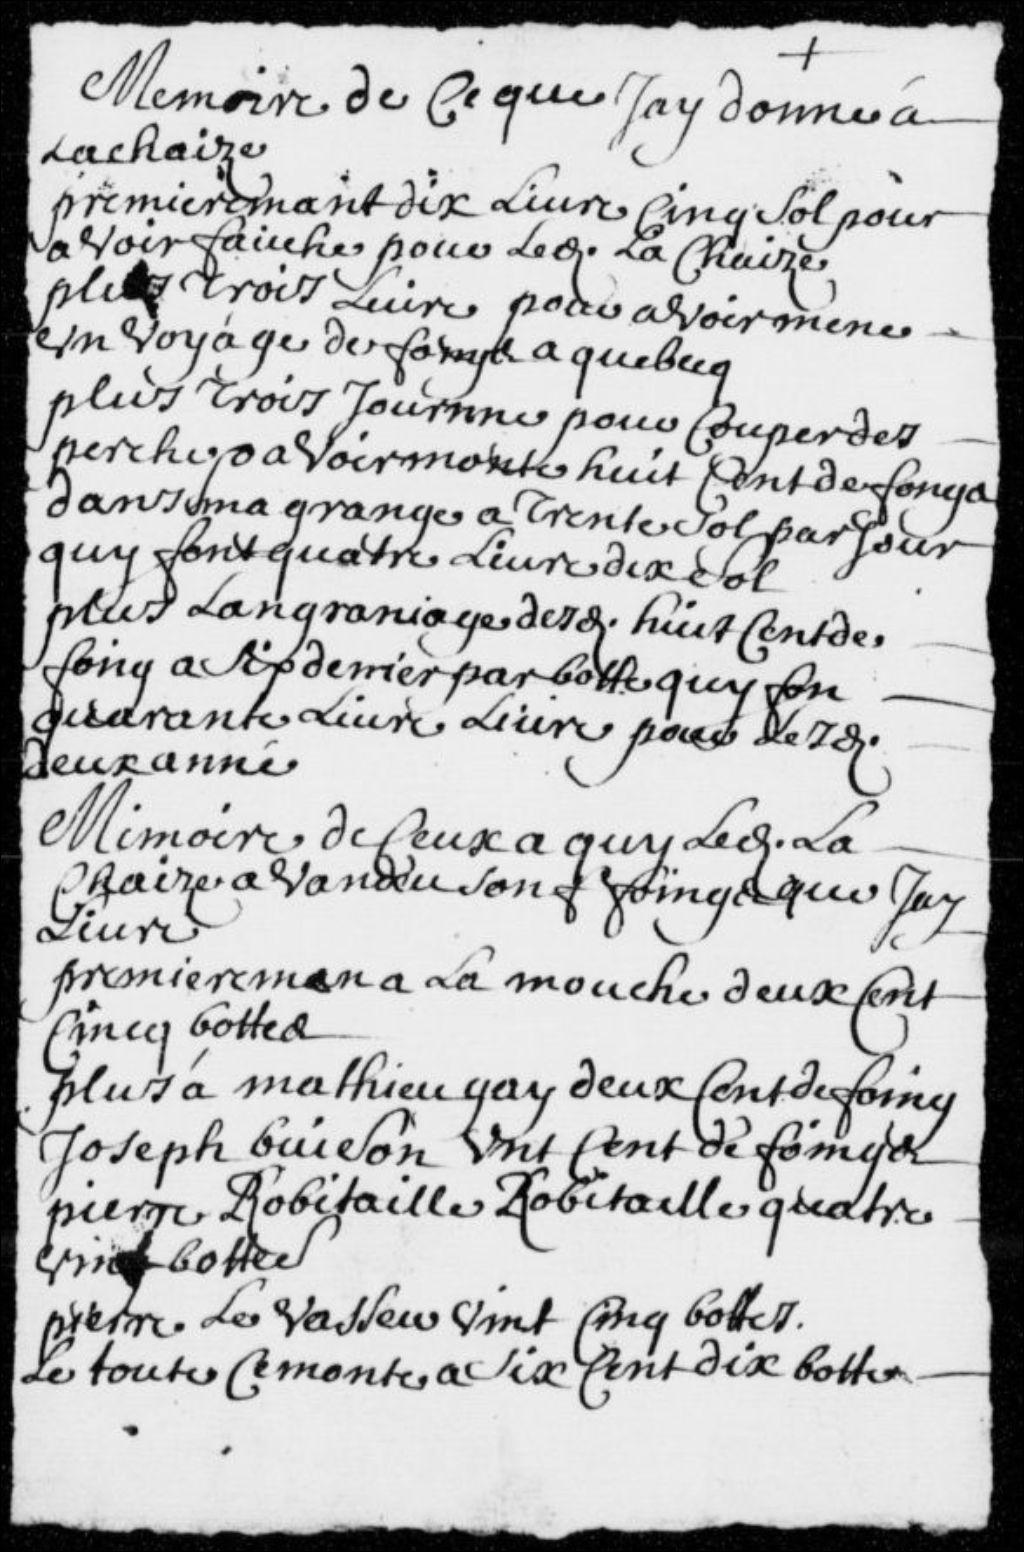 +
Memoire de Ce que Jay donne a
Lachaize
premieremant dix Liure Cinq Sol pour
avoir fauche pour Led. La Chaize
plus trois Liure pour avoir mene
un voyage de foingt a quebecq
plus trois Journne pour Couper des
perche avoir monte huit Cent de foinga
dans ma grange a trente Sol par Jour
quy font quatre Liure dix Sol
plus Langraniage desd. huit Cent de
foing a Six denier par botte quy fon
quarante Liure Liure pour Lesd.
deux anne
Mimoire de Ceux a quy Led. La
Chaize a vandeu son f foingt que Jay
Liure
premiereman a La mouche deux Cent
Cincq bottes
plus a mathieu gay deux Cent de foing
Joseph buieson unt Cent de foingt
pierre Robitaille Robitaille quatre
vint bottes
pierre Le vasseu vint Cinq bottes.
Le toute Ce monte a Six Cent dix botte